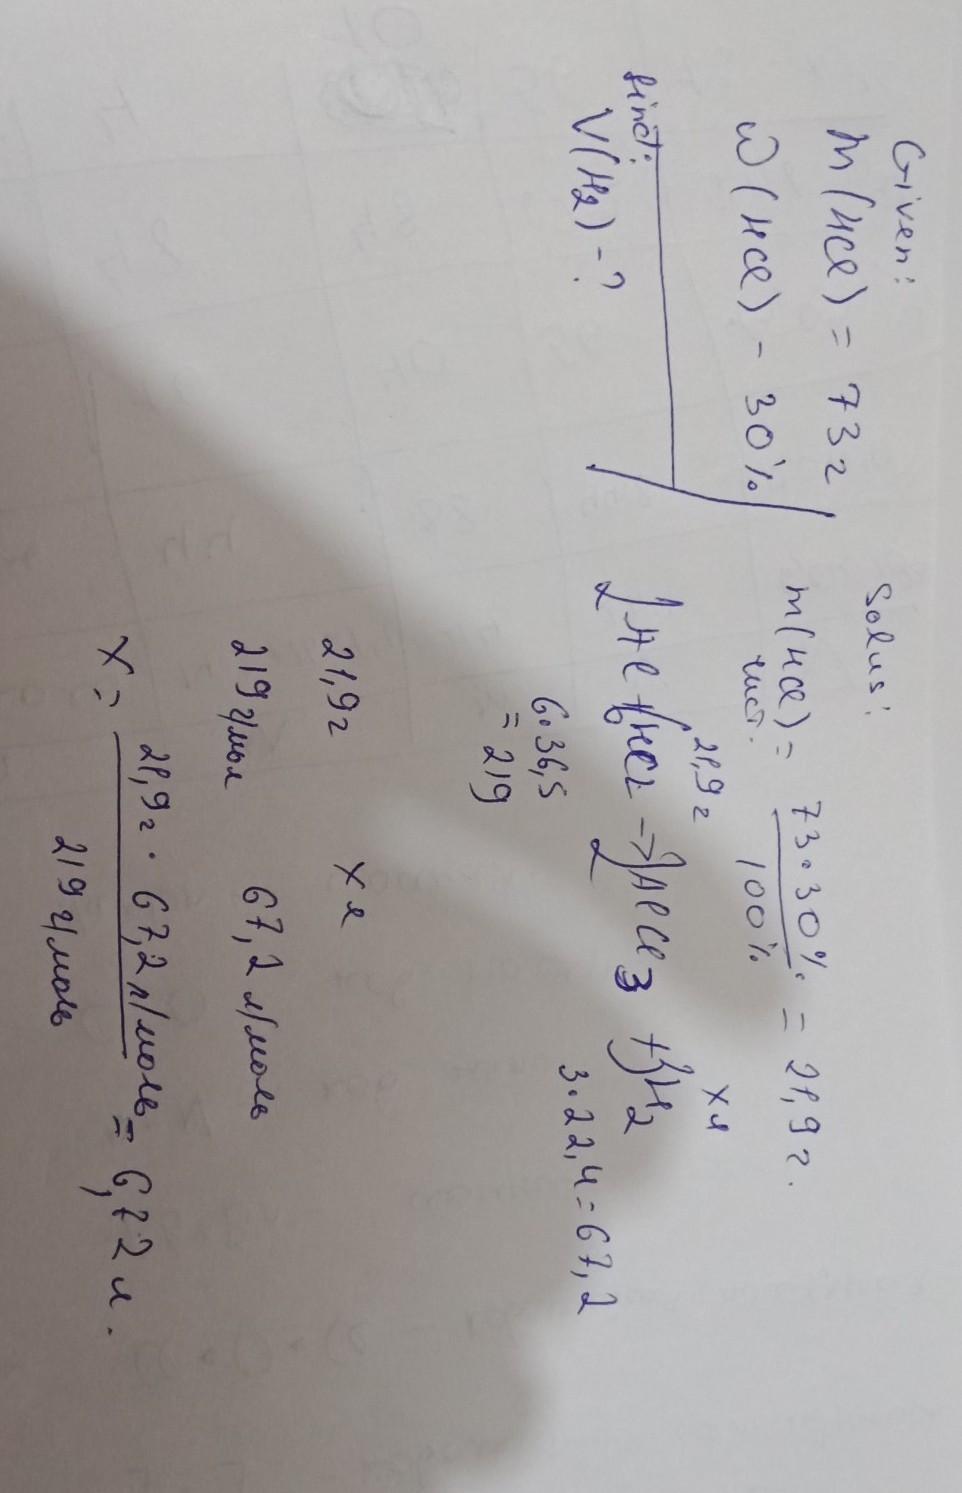 Given:
m(HCl) = 73г
ω(HCl) - 30%
find:
V(H2) - ?
Solus:
m(HCl) = 73·30% / 100% = 21,9г.
чист.
21,9г xл
2Al + 6HCl → 2AlCl3 + 3H2
6·36,5 3·22,4=67,2
= 219
21,9г xл
219г/мол 67,2 л/моль
x = 21,9г · 67,2л/моль / 219г/моль = 6,72л.